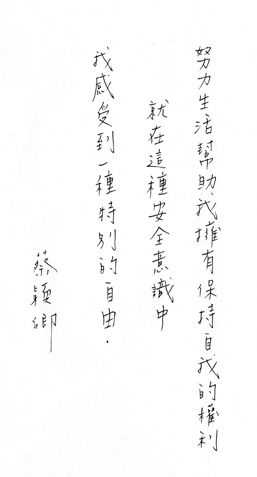 努力生活幫助我擁有保持自我的權利
就在這種安全意識中
我感受到一種特別的自由.
蔡穎卿